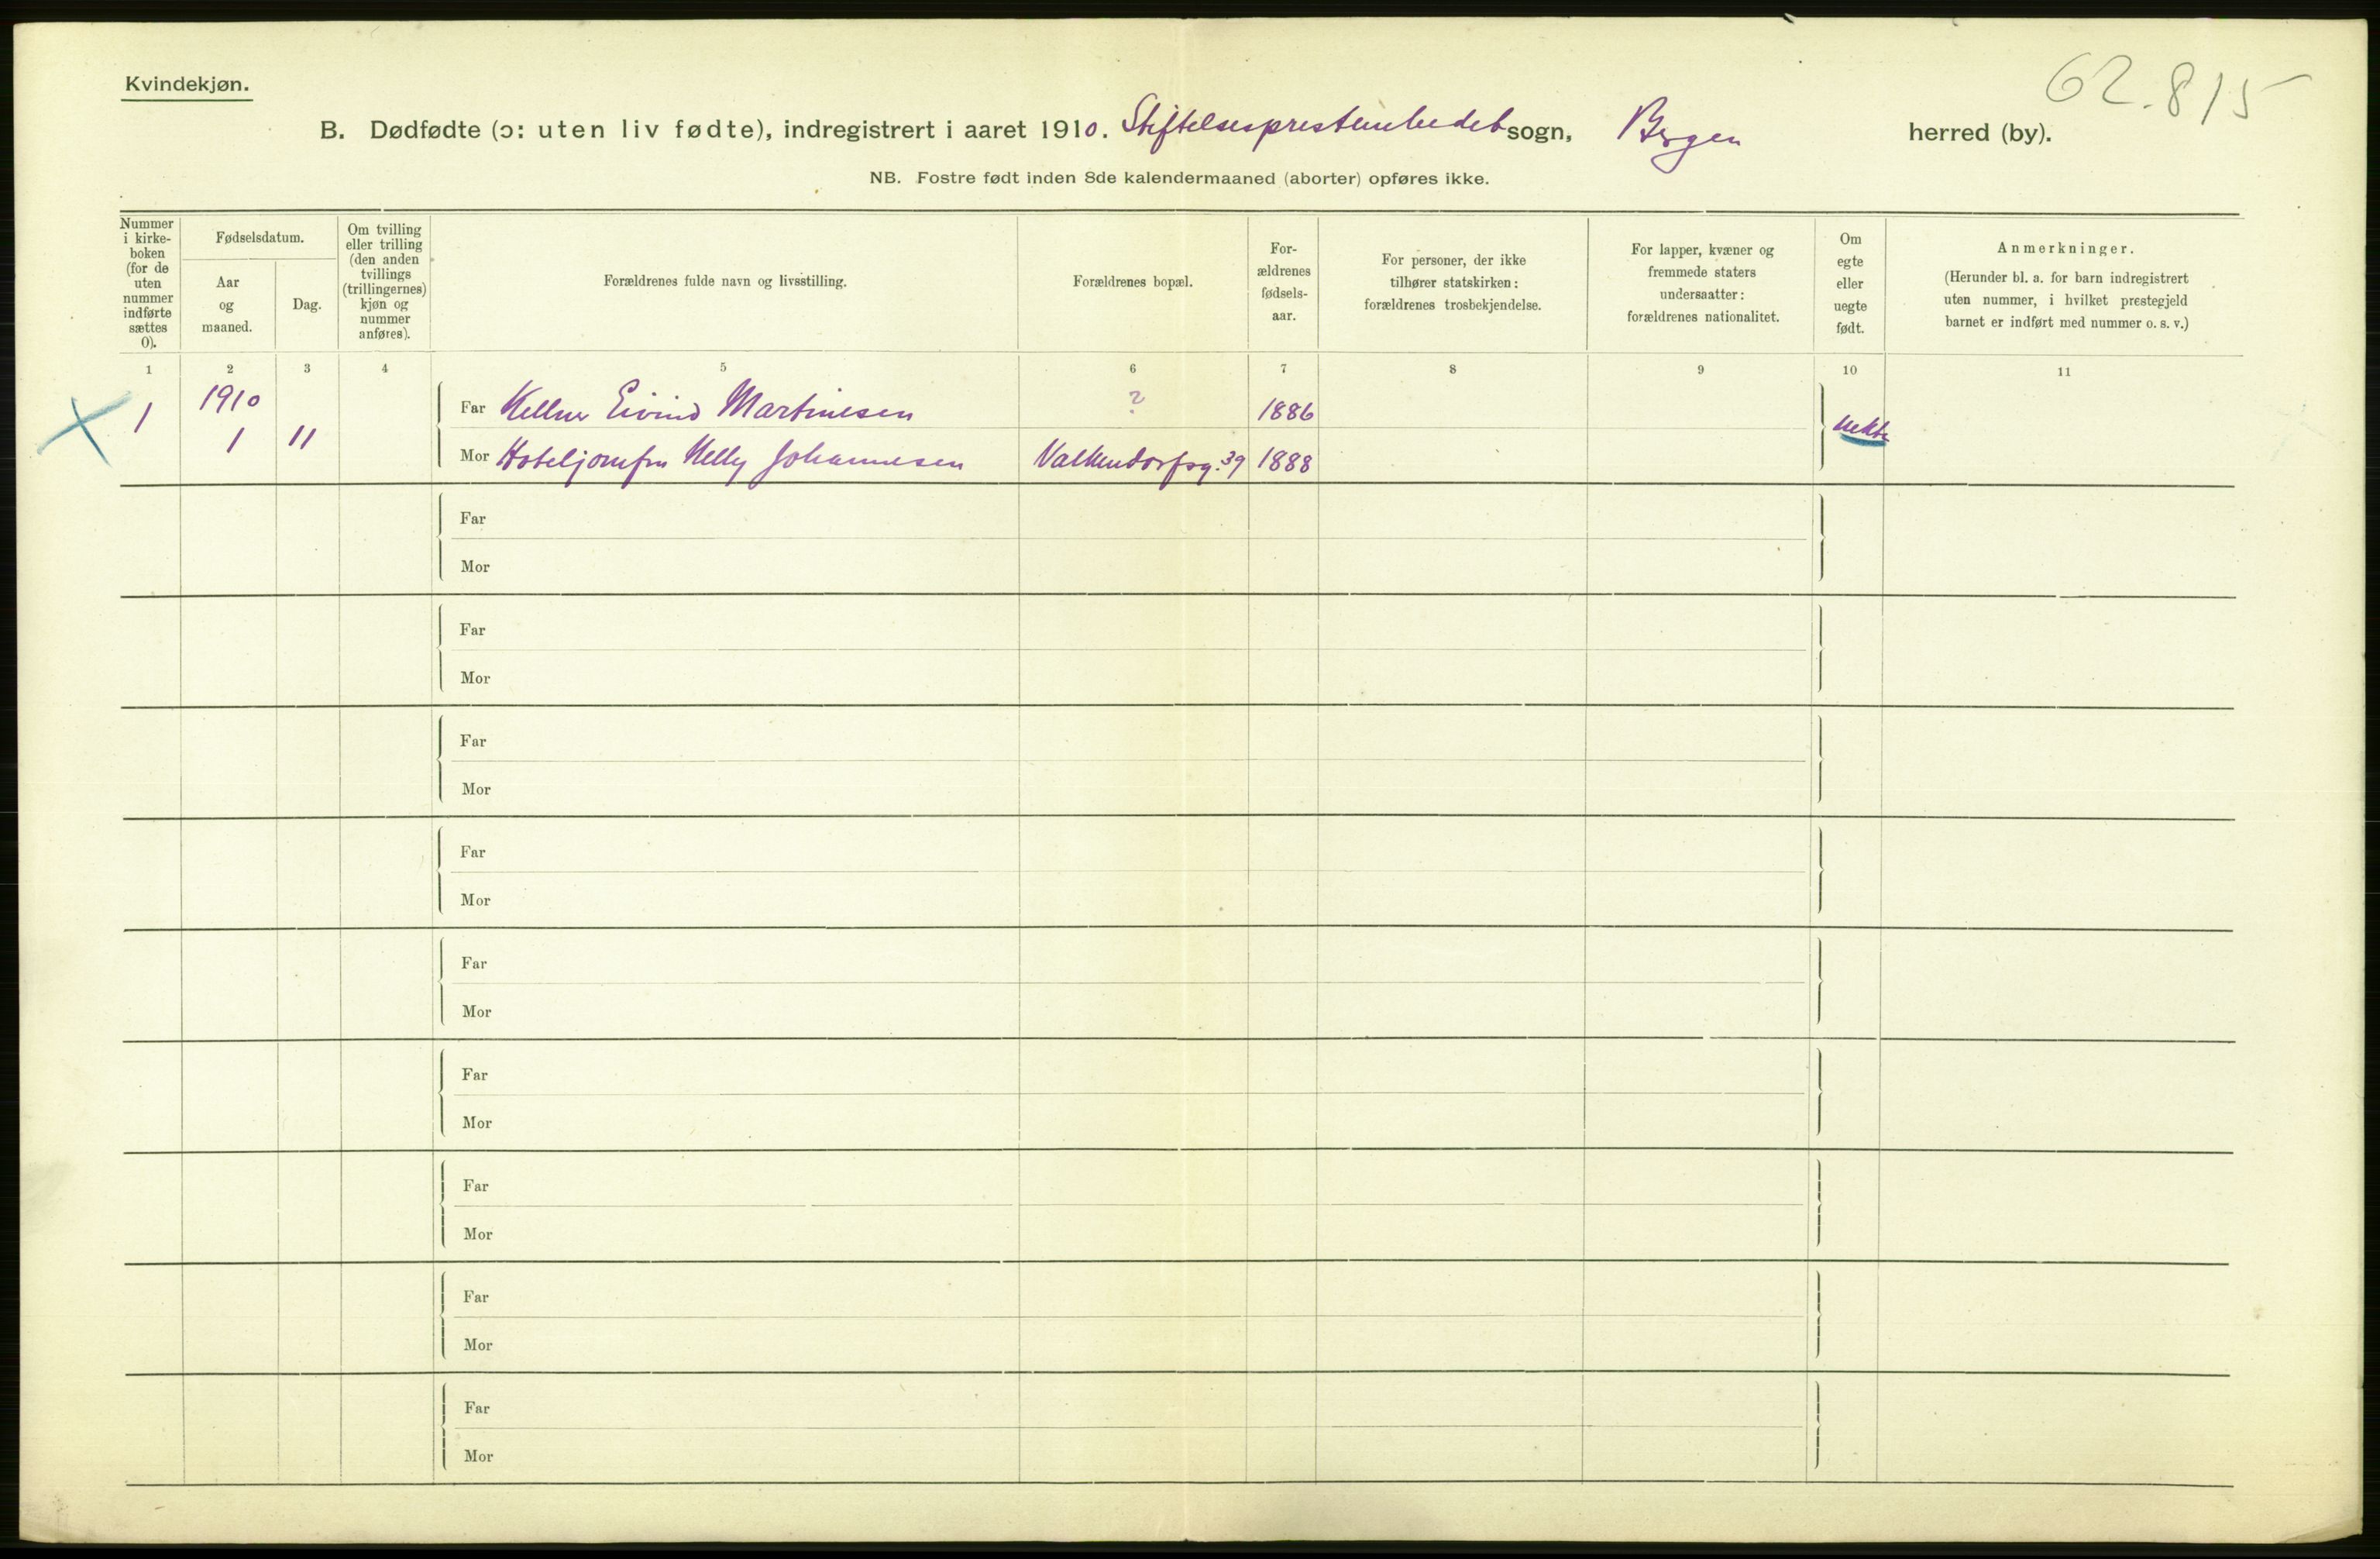 62.815
Kvindekjøn.
B. Dødfødte (ɔ: uten liv fødte), indregistrert i aaret 1910. Stiftelsesprestembedet sogn, Bergen herred (by).
NB. Fostre født inden 8de kalendermaaned (aborter) opføres ikke.
Nummer
i kirke-
boken
(for de
uten
nummer
indførte
sættes
0).
Fødselsdatum.
Aar
og
maaned.
Dag.
Om tvilling
eller trilling
(den anden
tvillings
(trillingernes)
kjøn og
nummer
anføres).
Forældrenes fulde navn og livsstilling.
Forældrenes bopæl.
For-
ældrenes
fødsels-
aar.
For personer, der ikke
tilhører statskirken:
forældrenes trosbekjendelse.
For lapper, kvæner og
fremmede staters
undersaatter:
forældrenes nationalitet.
Om
egte
eller
uegte
født.
Anmerkninger.
(Herunder bl. a. for barn indregistrert
uten nummer, i hvilket prestegjeld
barnet er indført med nummer o. s. v.)
1 2 3 4 5 6 7 8 9 10 11
1 1910
1 11
Far Kellner Eivind Martinesen ? 1886
uekte
Mor Hoteljomfru Nelly Johannesen Valkendorfsg. 39 1888
Far
Mor
Far
Mor
Far
Mor
Far
Mor
Far
Mor
Far
Mor
Far
Mor
Far
Mor
Far
Mor